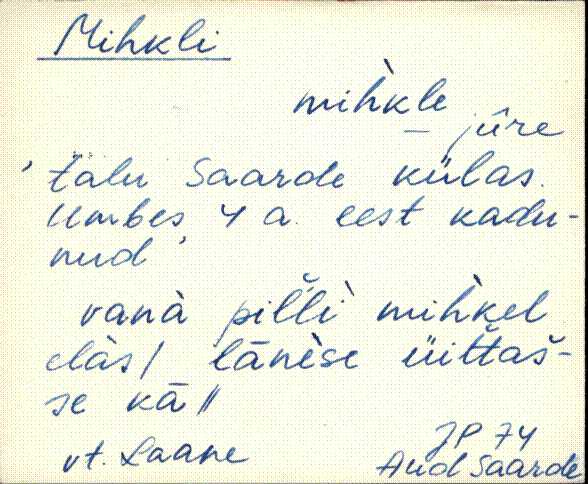 Mihkli
mìhkle
jûre
'talu Saarde külas.
Umbes 4 a. eest kadu-
nud'
vanà pil̆lì mìhkel
elàs/ lānèse üittaš-
se kā //
vt. Laane
JP 74
Aud Saarde